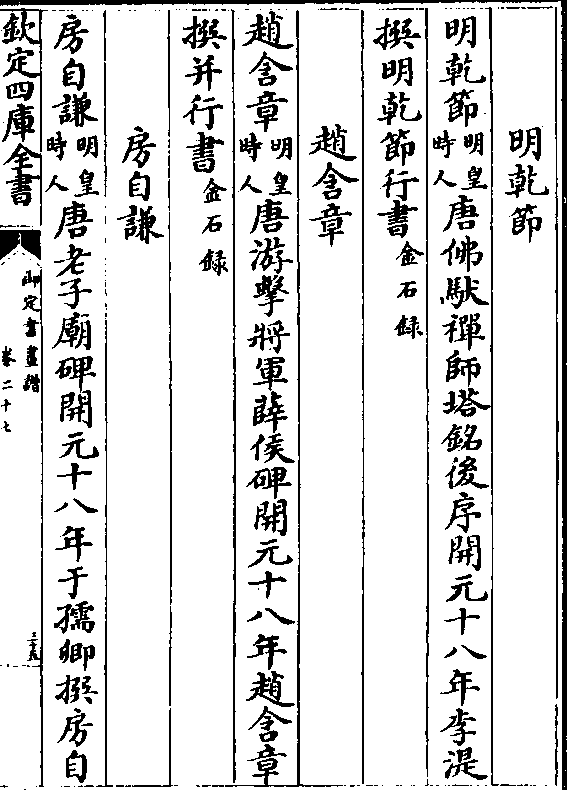 明乾節
明乾節明皇時人唐佛馱禪師塔銘後序開元十八年李湜
撰明乾節行書金石録
趙含章
趙含章明皇時人唐游擊將軍薛侯碑開元十八年趙含章
撰并行書金石録
房自謙
房自謙明皇時人唐老子廟碑開元十八年于孺卿撰房自
欽定四庫全書
御定書畫譜
卷二十七
三十五